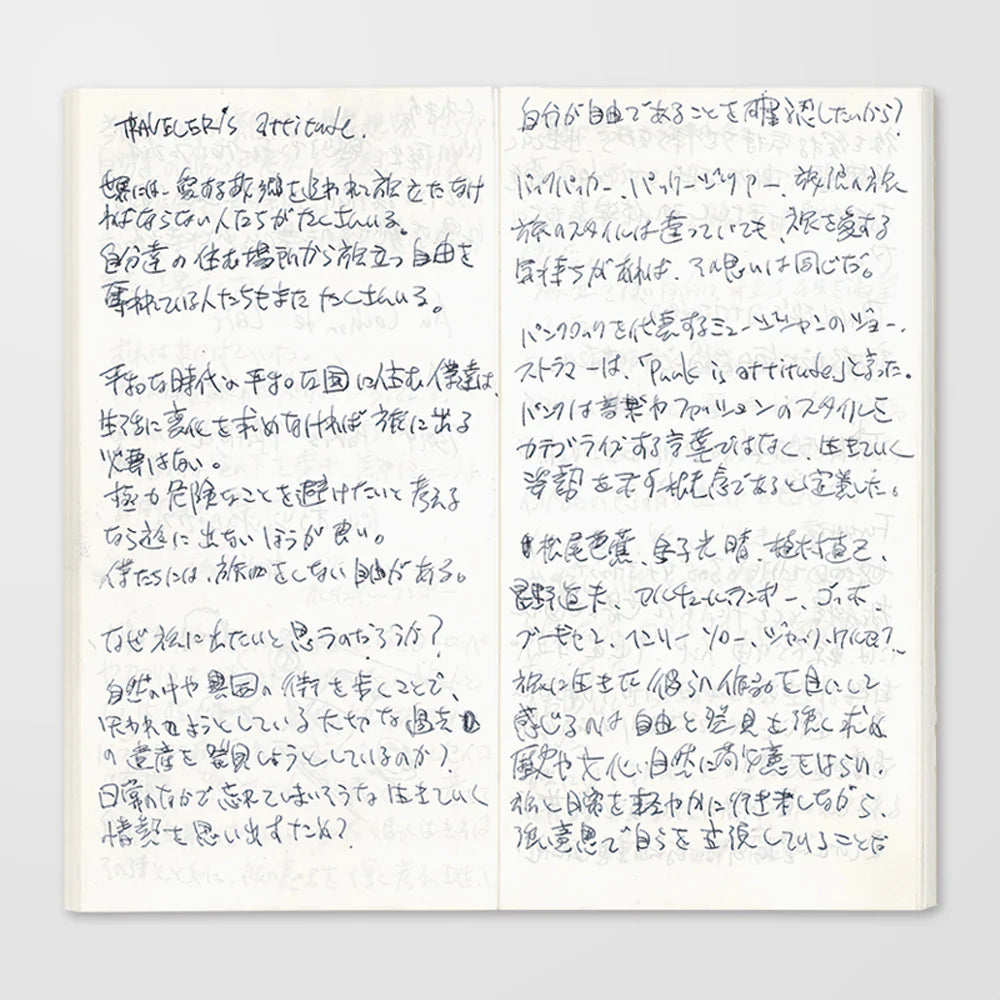 TRAVELER'S attitude.
世界には、愛する故郷を追われ旅立たなけ
ればならない人たちがたくさんいる。
自分達の住む場所から旅立つ自由を
奪われている人たちもまたたくさんいる。
平和な時代の平和な国に住む僕達は、
生活に変化を求めなければ旅に出る
必要はない。
極力危険なことを避けたいと考える
なら旅に出ないほうが良い。
僕たちには、旅をしない自由がある。
なぜ旅に出たいと思うのだろうか?
自然の中や異国の街を歩くことで、
失われようとしている大切な過去
の遺産を発見しようとしているのか?
日常のなかで忘れてしまいそうな生きていく
情熱を思い出すため?
自分が自由であることを確認したいから?
バックパッカー、パッケージツアー、放浪の旅
旅のスタイルは違っていても、旅を愛する
気持ちがあれば、その思いは同じだ。
パンクロックを代表するミュージシャンのジョー・
ストラマーは、「Punk is attitude」と言った。
パンクは音楽やファッションのスタイルを
カテゴライズする言葉ではなく、生きていく
姿勢を示す概念であると定義した。
松尾芭蕉、金子光晴、植村直己、
星野道夫、アルチュール・ランボー、ゴッホ、
ブーギャン、ヘンリー・ソロー、ジャック・ケルアック…
旅に生きた彼らの作品を目にして
感じるのは自由と発見を強く求め
歴史や文化、自然に敬意をはらい、
旅と日常を軽やかに行き来しながら
強い意思で自らを主張していることだ